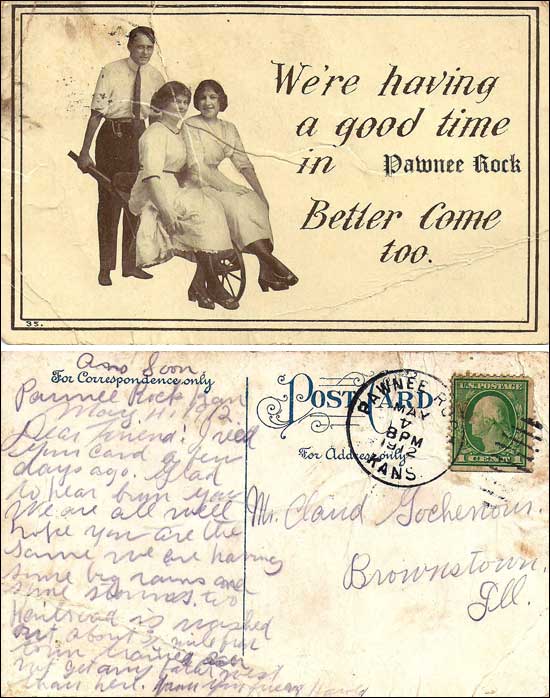 We're having
a good time
in Pawnee Rock
Better Come
too.
35.
Ans Soon
For Correspondence only
Pawnee Rock Kan
May 4, 1912.
Dear friend: I recd
your card a few
days ago. Glad
to hear from you
We are all well
hope you are the
same we are having
some big rains and
some storms. too
Railroad is washed
out about 3 mile from
town trains
not get any farther west
than here. from your friend Harry
POST CARD
For Address only
PAWNEE ROCK
MAY
4
8 PM
1912
KANS.
U.S. POSTAGE
1 CENT 1
Mr. Claud Gochenour.
Brownstown,
Ill.